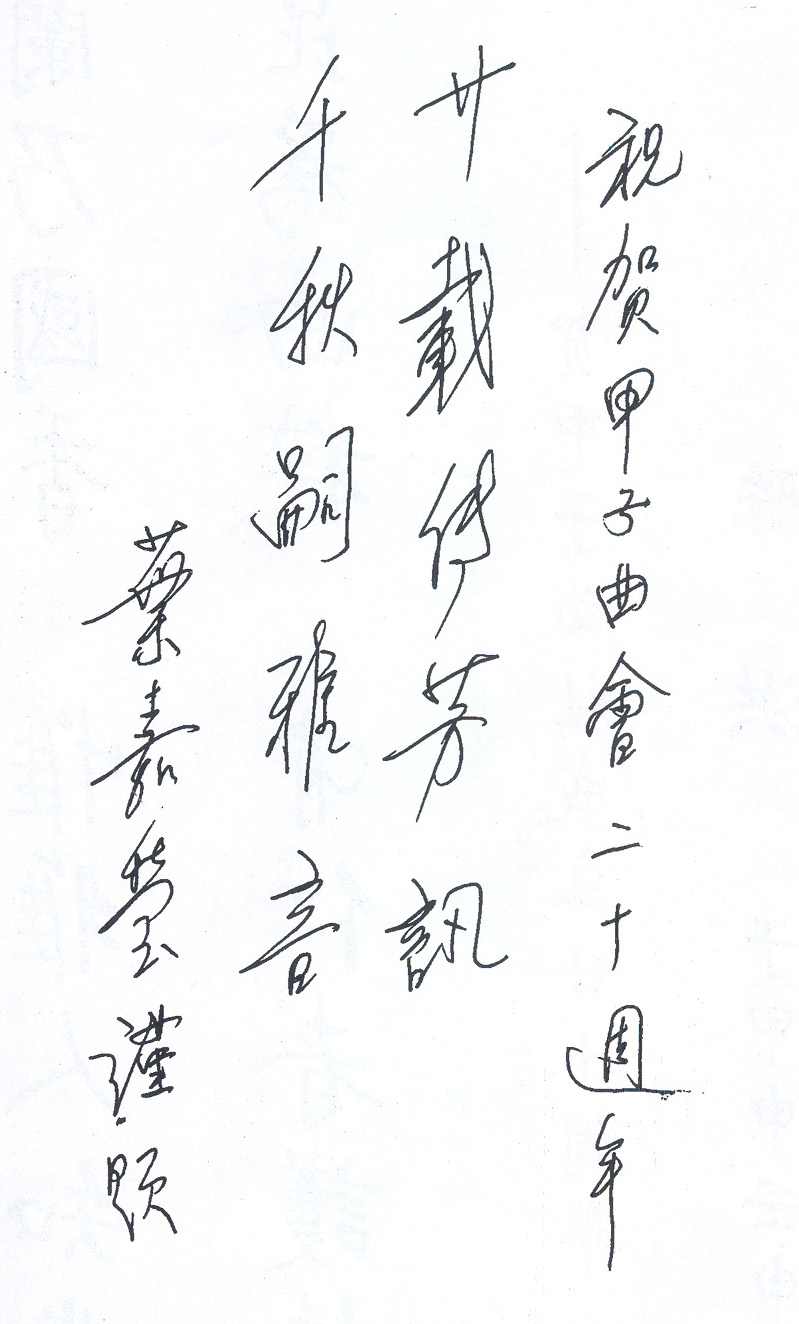 祝贺甲子曲會二十週年
廿載传芳訊
千秋嗣雅音
葉嘉瑩謹題